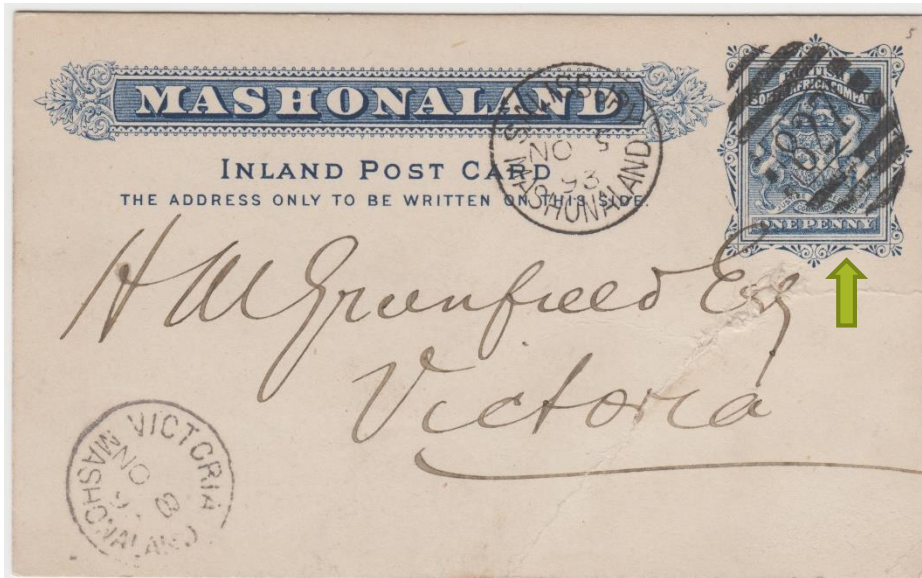 5
MASHONALAND
INLAND POST CARD
THE ADDRESS ONLY TO BE WRITTEN ON THIS SIDE.
SALISBURY
NO 5
93
MASHONALAND
BRITISH
SOUTH AFRICA COMPANY
ONE PENNY
H M Greenfield Esq
Victoria
VICTORIA
NO 8
MASHONALAND